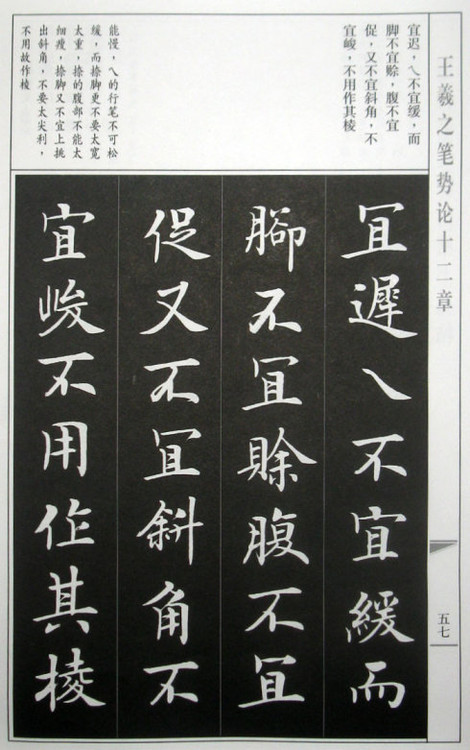 王羲之笔势论十二章
五七
宜迟，乀不宜缓，而
脚不宜赊，腹不宜
促，又不宜斜角，不
宜峻，不用作其棱
能慢，乀的行笔不可松
缓，而捺脚更不要太宽
太重，捺的腹部不能太
细瘦，捺脚又不宜上挑
出斜角，不要太尖利，
不用故作棱
宜遲乀不宜緩而
腳不宜賒腹不宜
促又不宜斜角不
宜峻不用作其棱